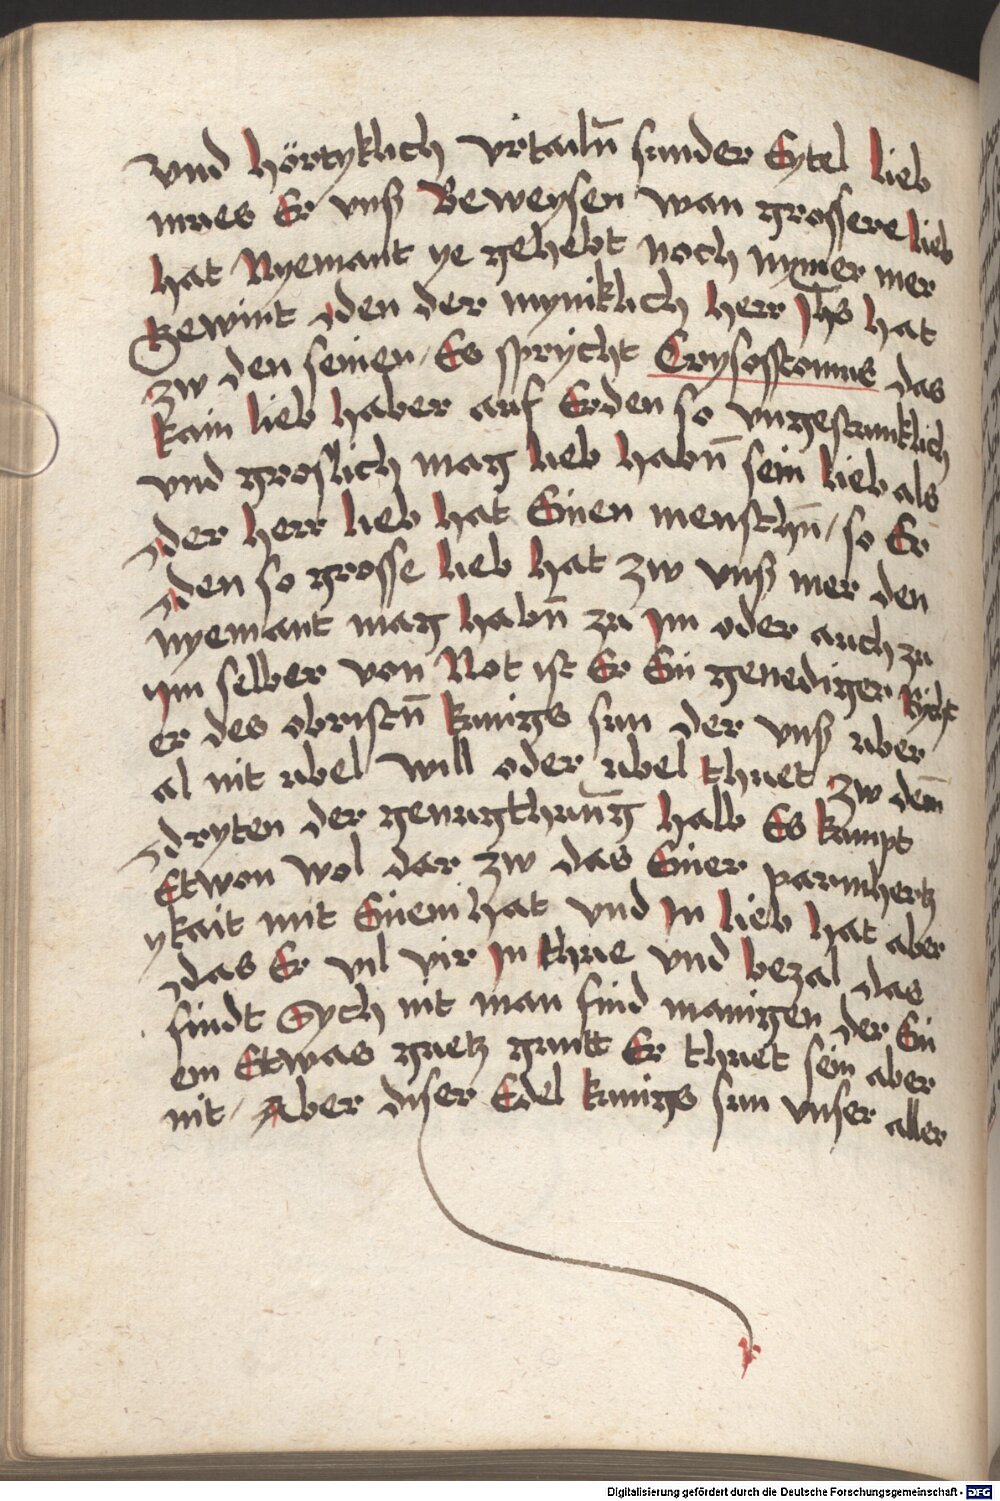 vnd hörtyklich vrtailn̄ sunder Eytel lieb
mues Er vnß Beweysen wan grossere lieb
hat Nyemant ye gehebt noch nymer mer
gewint den der myniklich herr Jhs hat
zw den seinen / Es sprycht Crysosstomus das
kain lieb haber auf Erden so vngestumklich
vnd groslich mag lieb habn̄ sein lieb als
der herr lieb hat Einen menschn̄ / so Er
den so grosse lieb hat zw vnß mer den
nyemant mag habn̄ zu im oder auch zu
ym selber von Not ist Er Ein genediger Richt
er des obristn̄ kunigs sun der vnß vber
al nit vbel will oder vbel thuet zw dem̄
dryten der genugthun̄g halb Es kumpt
Etwon wol dar zw das Einer parmhertz
ykait mit Einem hat vnd in lieb hat aber
das Er vil vir in thue vnd bezal das
findt Sych nit man find manigen der Ein
em Etwas guetz guntt Er thuet sein aber
nit / Aber diser Edel kunigs sun vnser aller
Digitalisierung gefördert durch die Deutsche Forschungsgemeinschaft - DFG